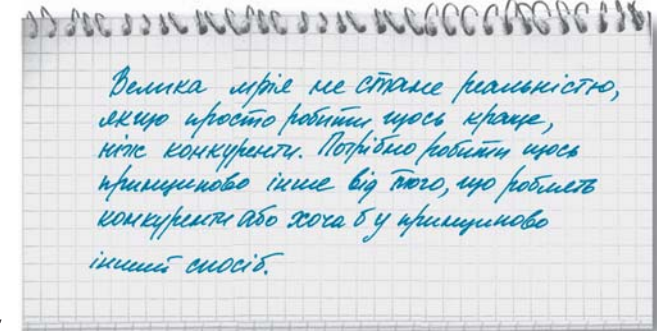 Велика мрія не стане реальністю,
якщо просто робити щось краще,
ніж конкуренти. Потрібно робити щось
принципово інше від того, що роблять
конкуренти або хоча б у принципово
інший спосіб.